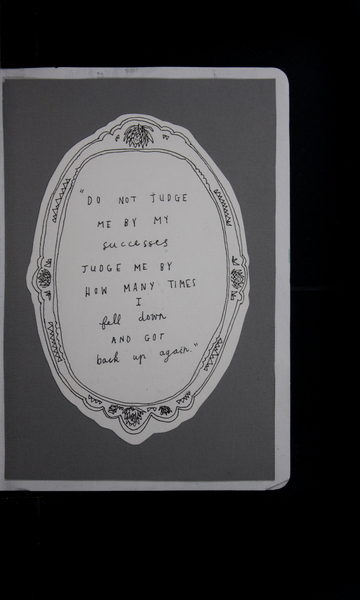 "DO NOT JUDGE
ME BY MY
successes
JUDGE ME BY
HOW MANY TIMES
I
fell down
AND GOT
back up again."